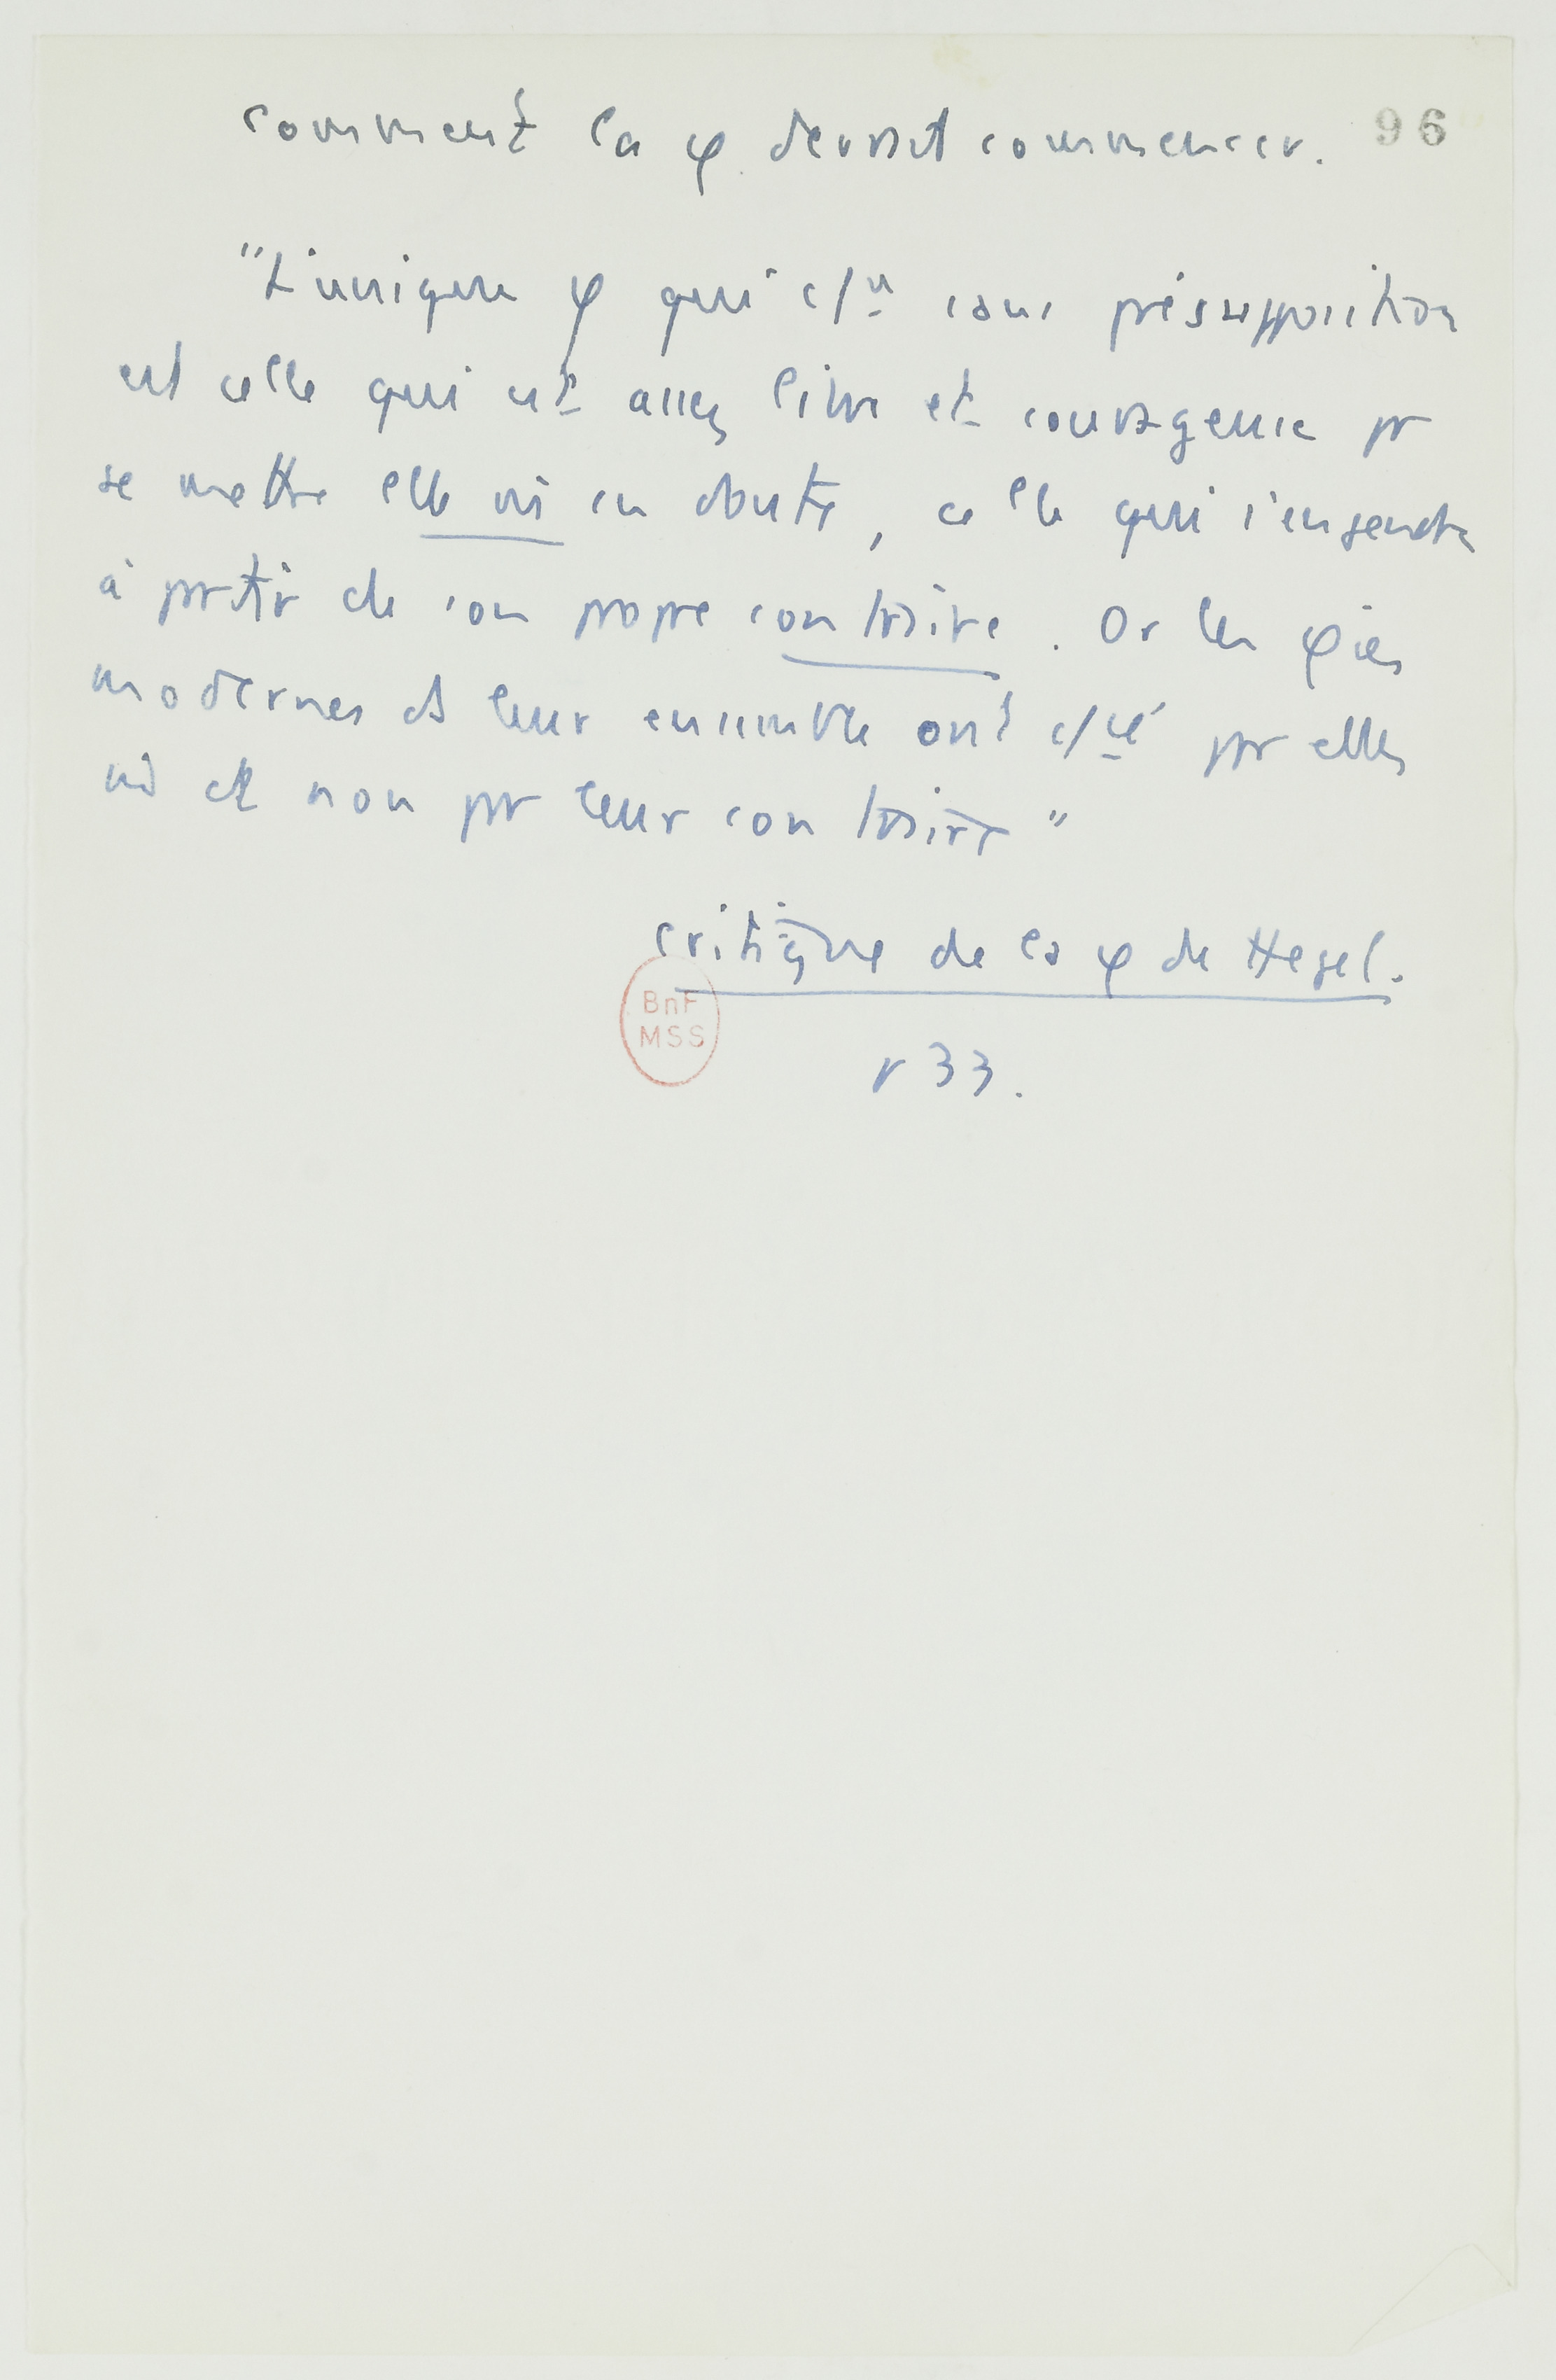 comment la φ devrait commencer. 96
"L'unique φ qui c/ce sans présupposition
est celle qui est assez libre et courageuse pr
se mettre elle mê en doute, celle qui s'engendre
à partir de son propre contraire. Or les φies
modernes ds leur ensemble ont c/cé par elles
mê et non par leur contraire"
critique de la φ de Hegel.
BnF
MSS
r 33.